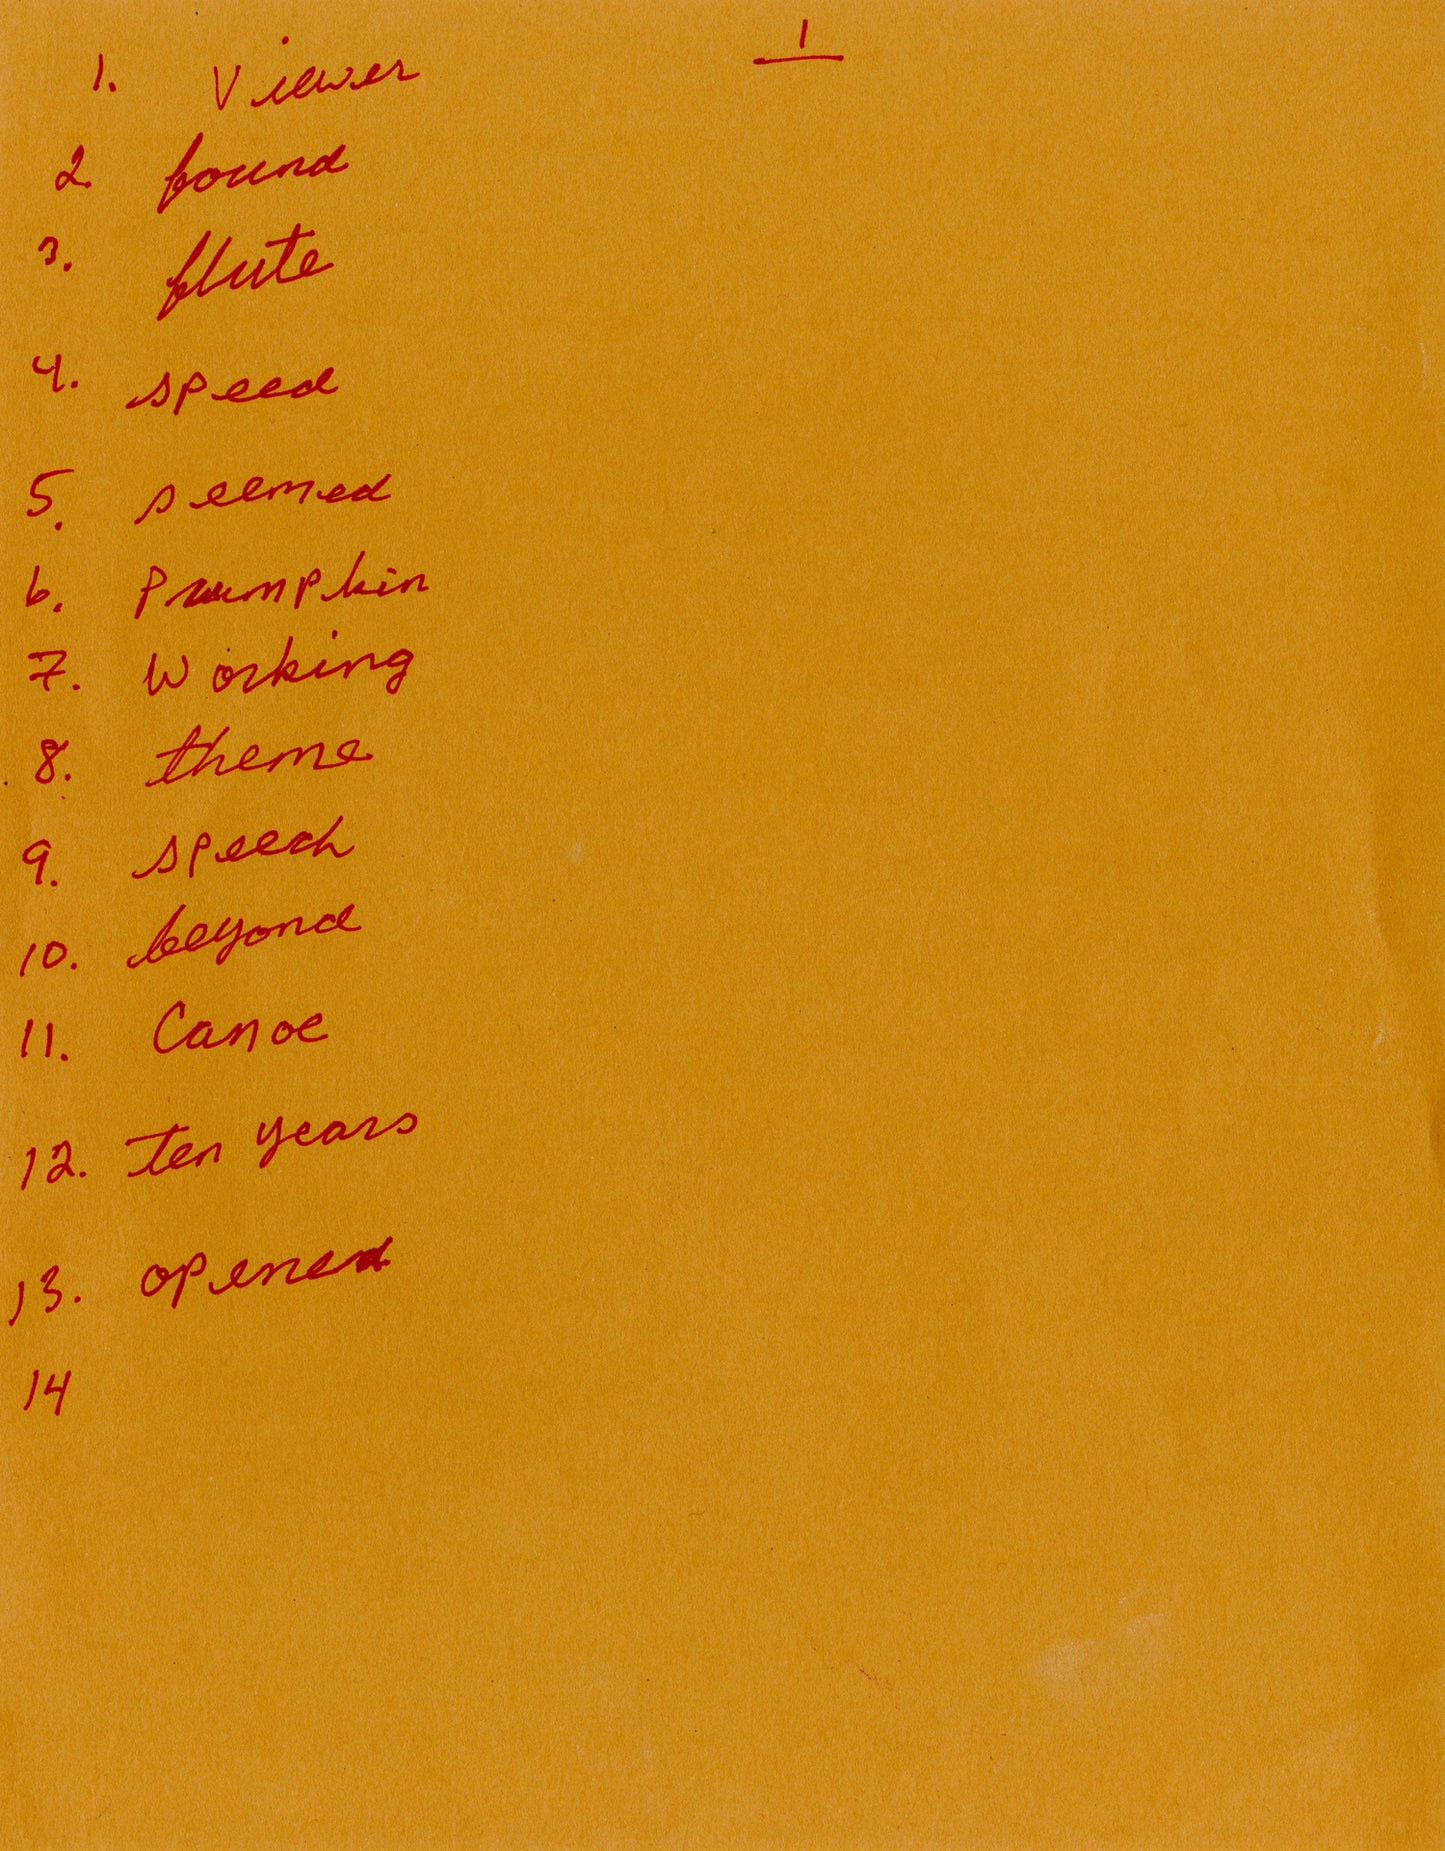 1
1. Viewer
2. found
3. flute
4. speed
5. seemed
6. Pumpkin
7. Working
8. theme
9. speech
10. beyond
11. Canoe
12. ten years
13. opened
14